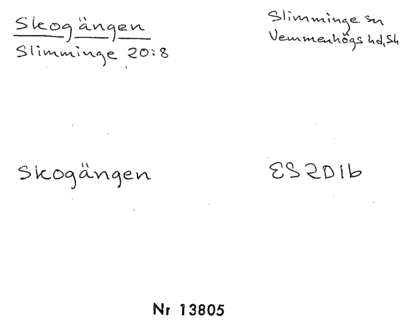 Skogängen
Slimminge 20:8
Slimminge sn
Vemmenhögs hd, Sk
Skogängen
ES 2D1b
Nr 13805